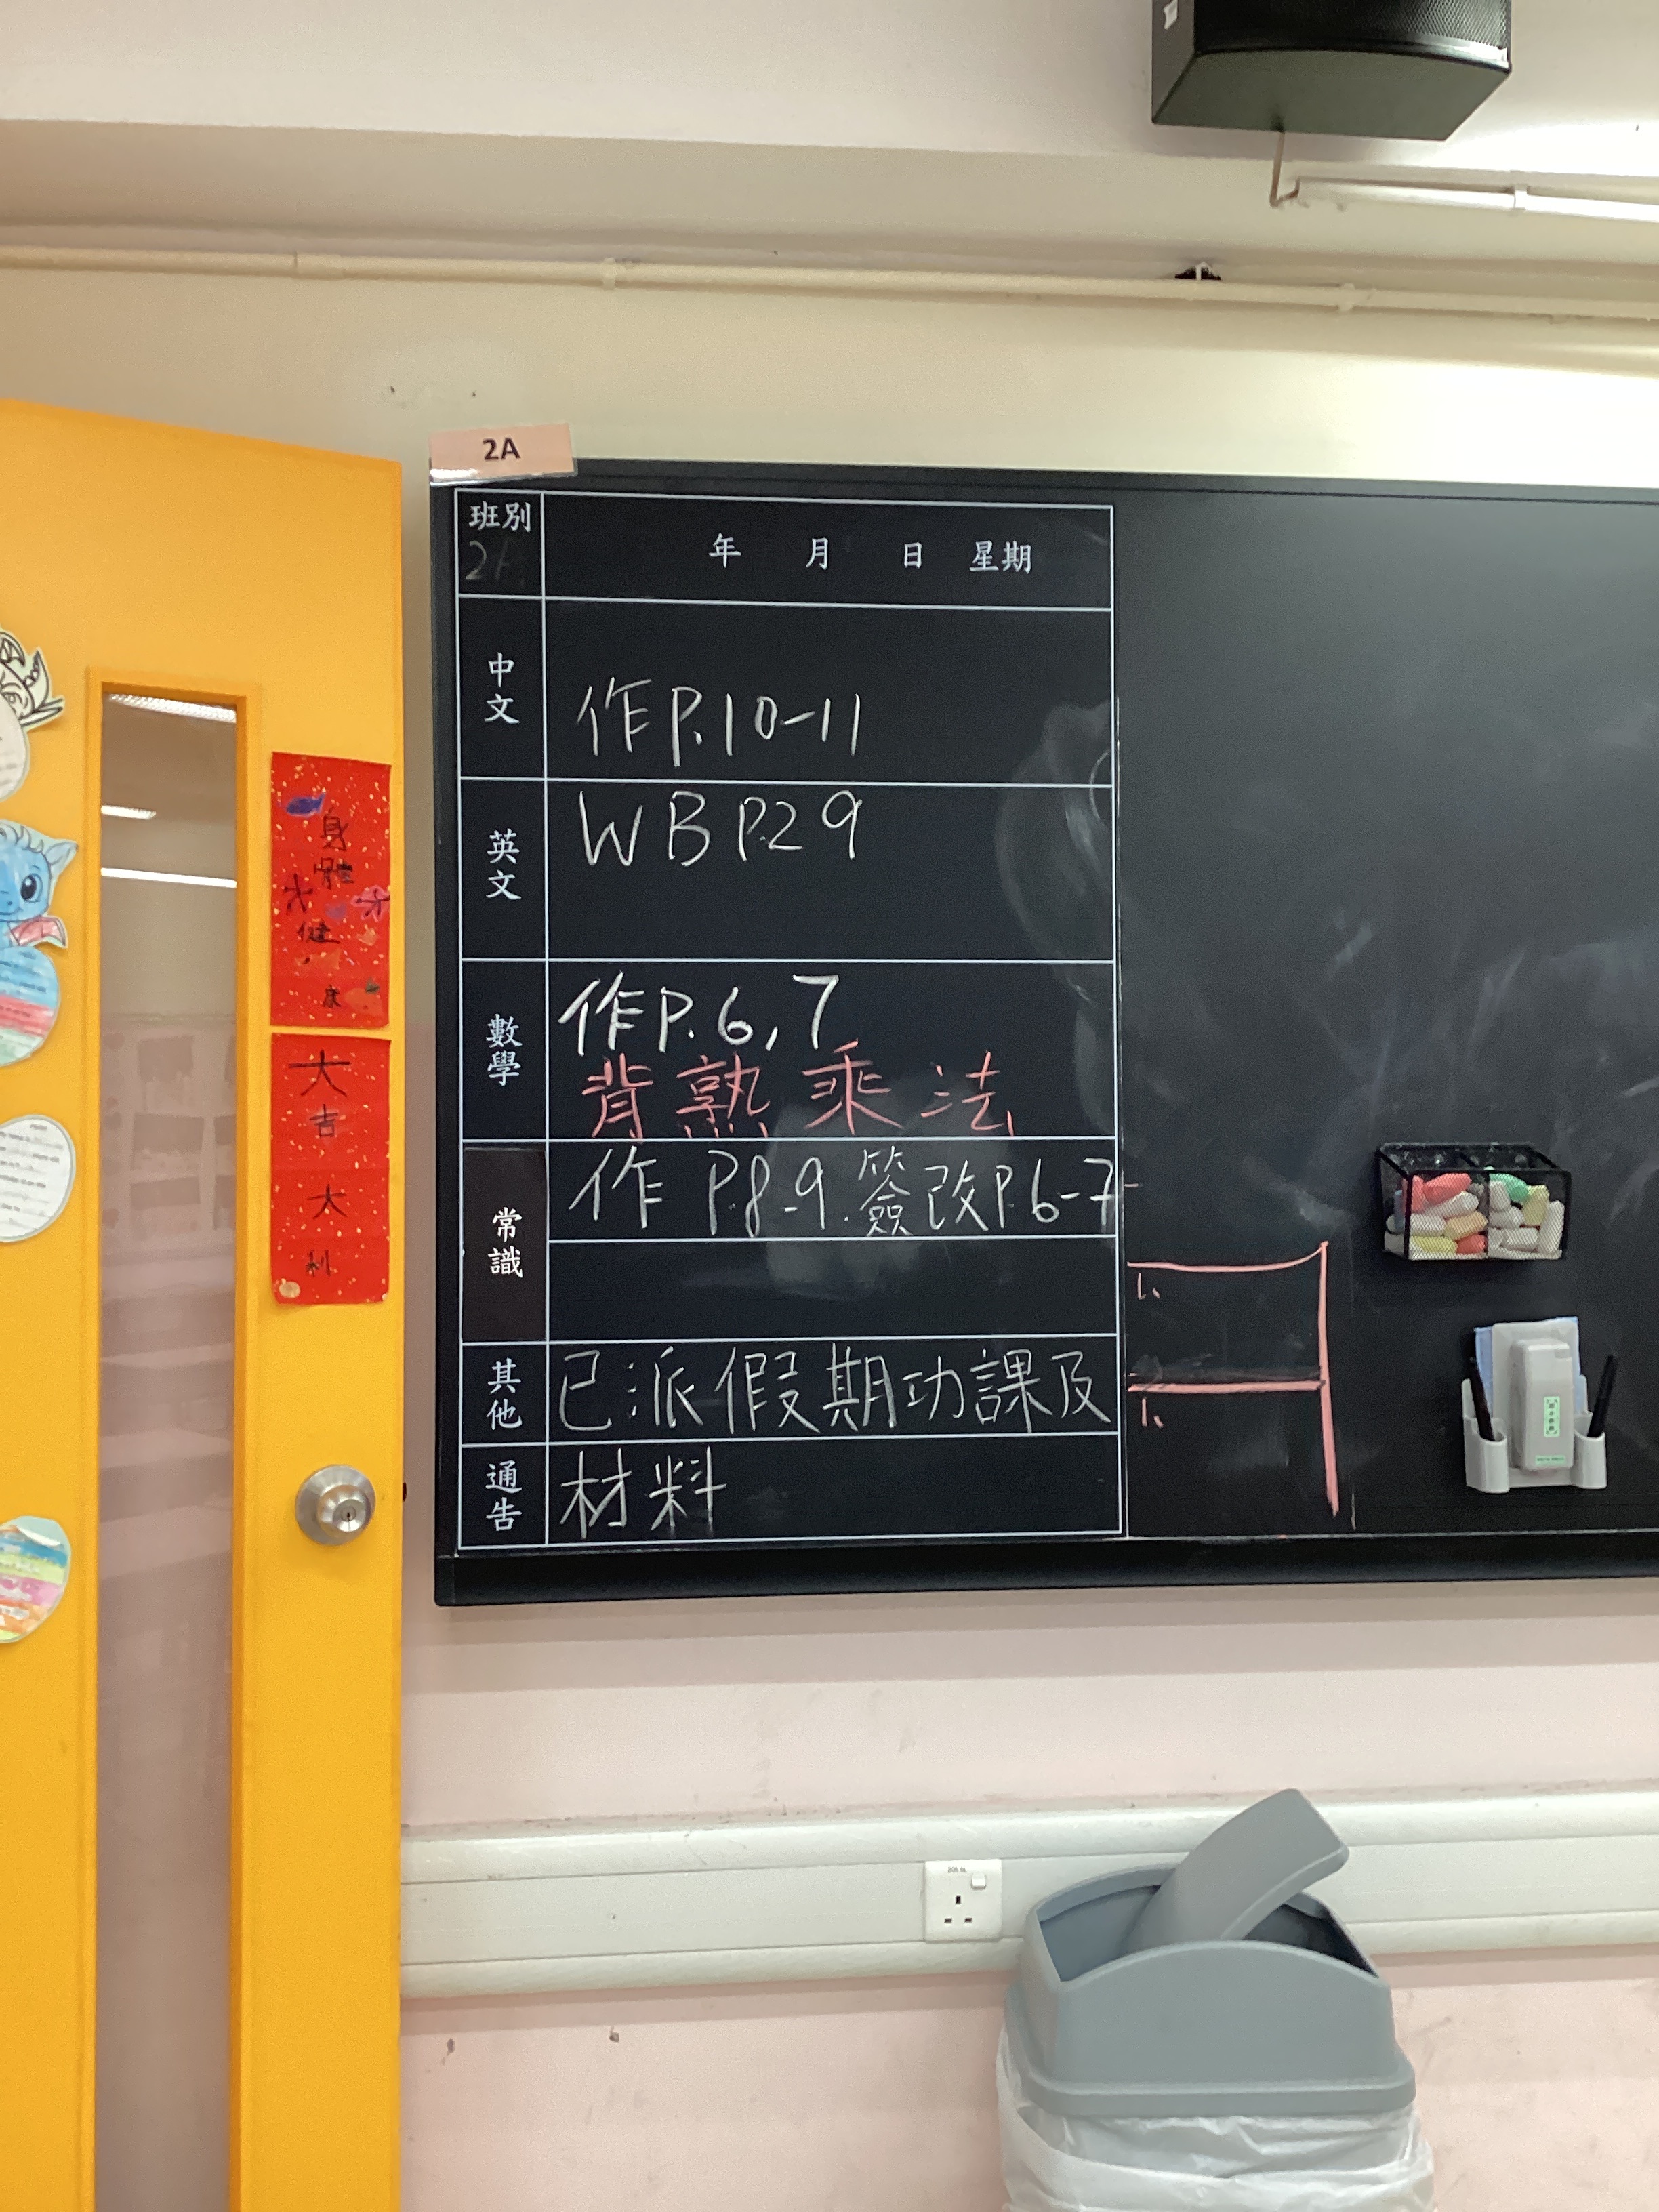 2A
班別
2A
年 月 日 星期
中文
作P.10-11
英文
WB P.29
數學
作P.6,7
背熟乘法
常識
作 P.8-9.簽改P.6-7
其他
已派假期功課及
通告
材料
1.
1.
身體健康
大吉大利